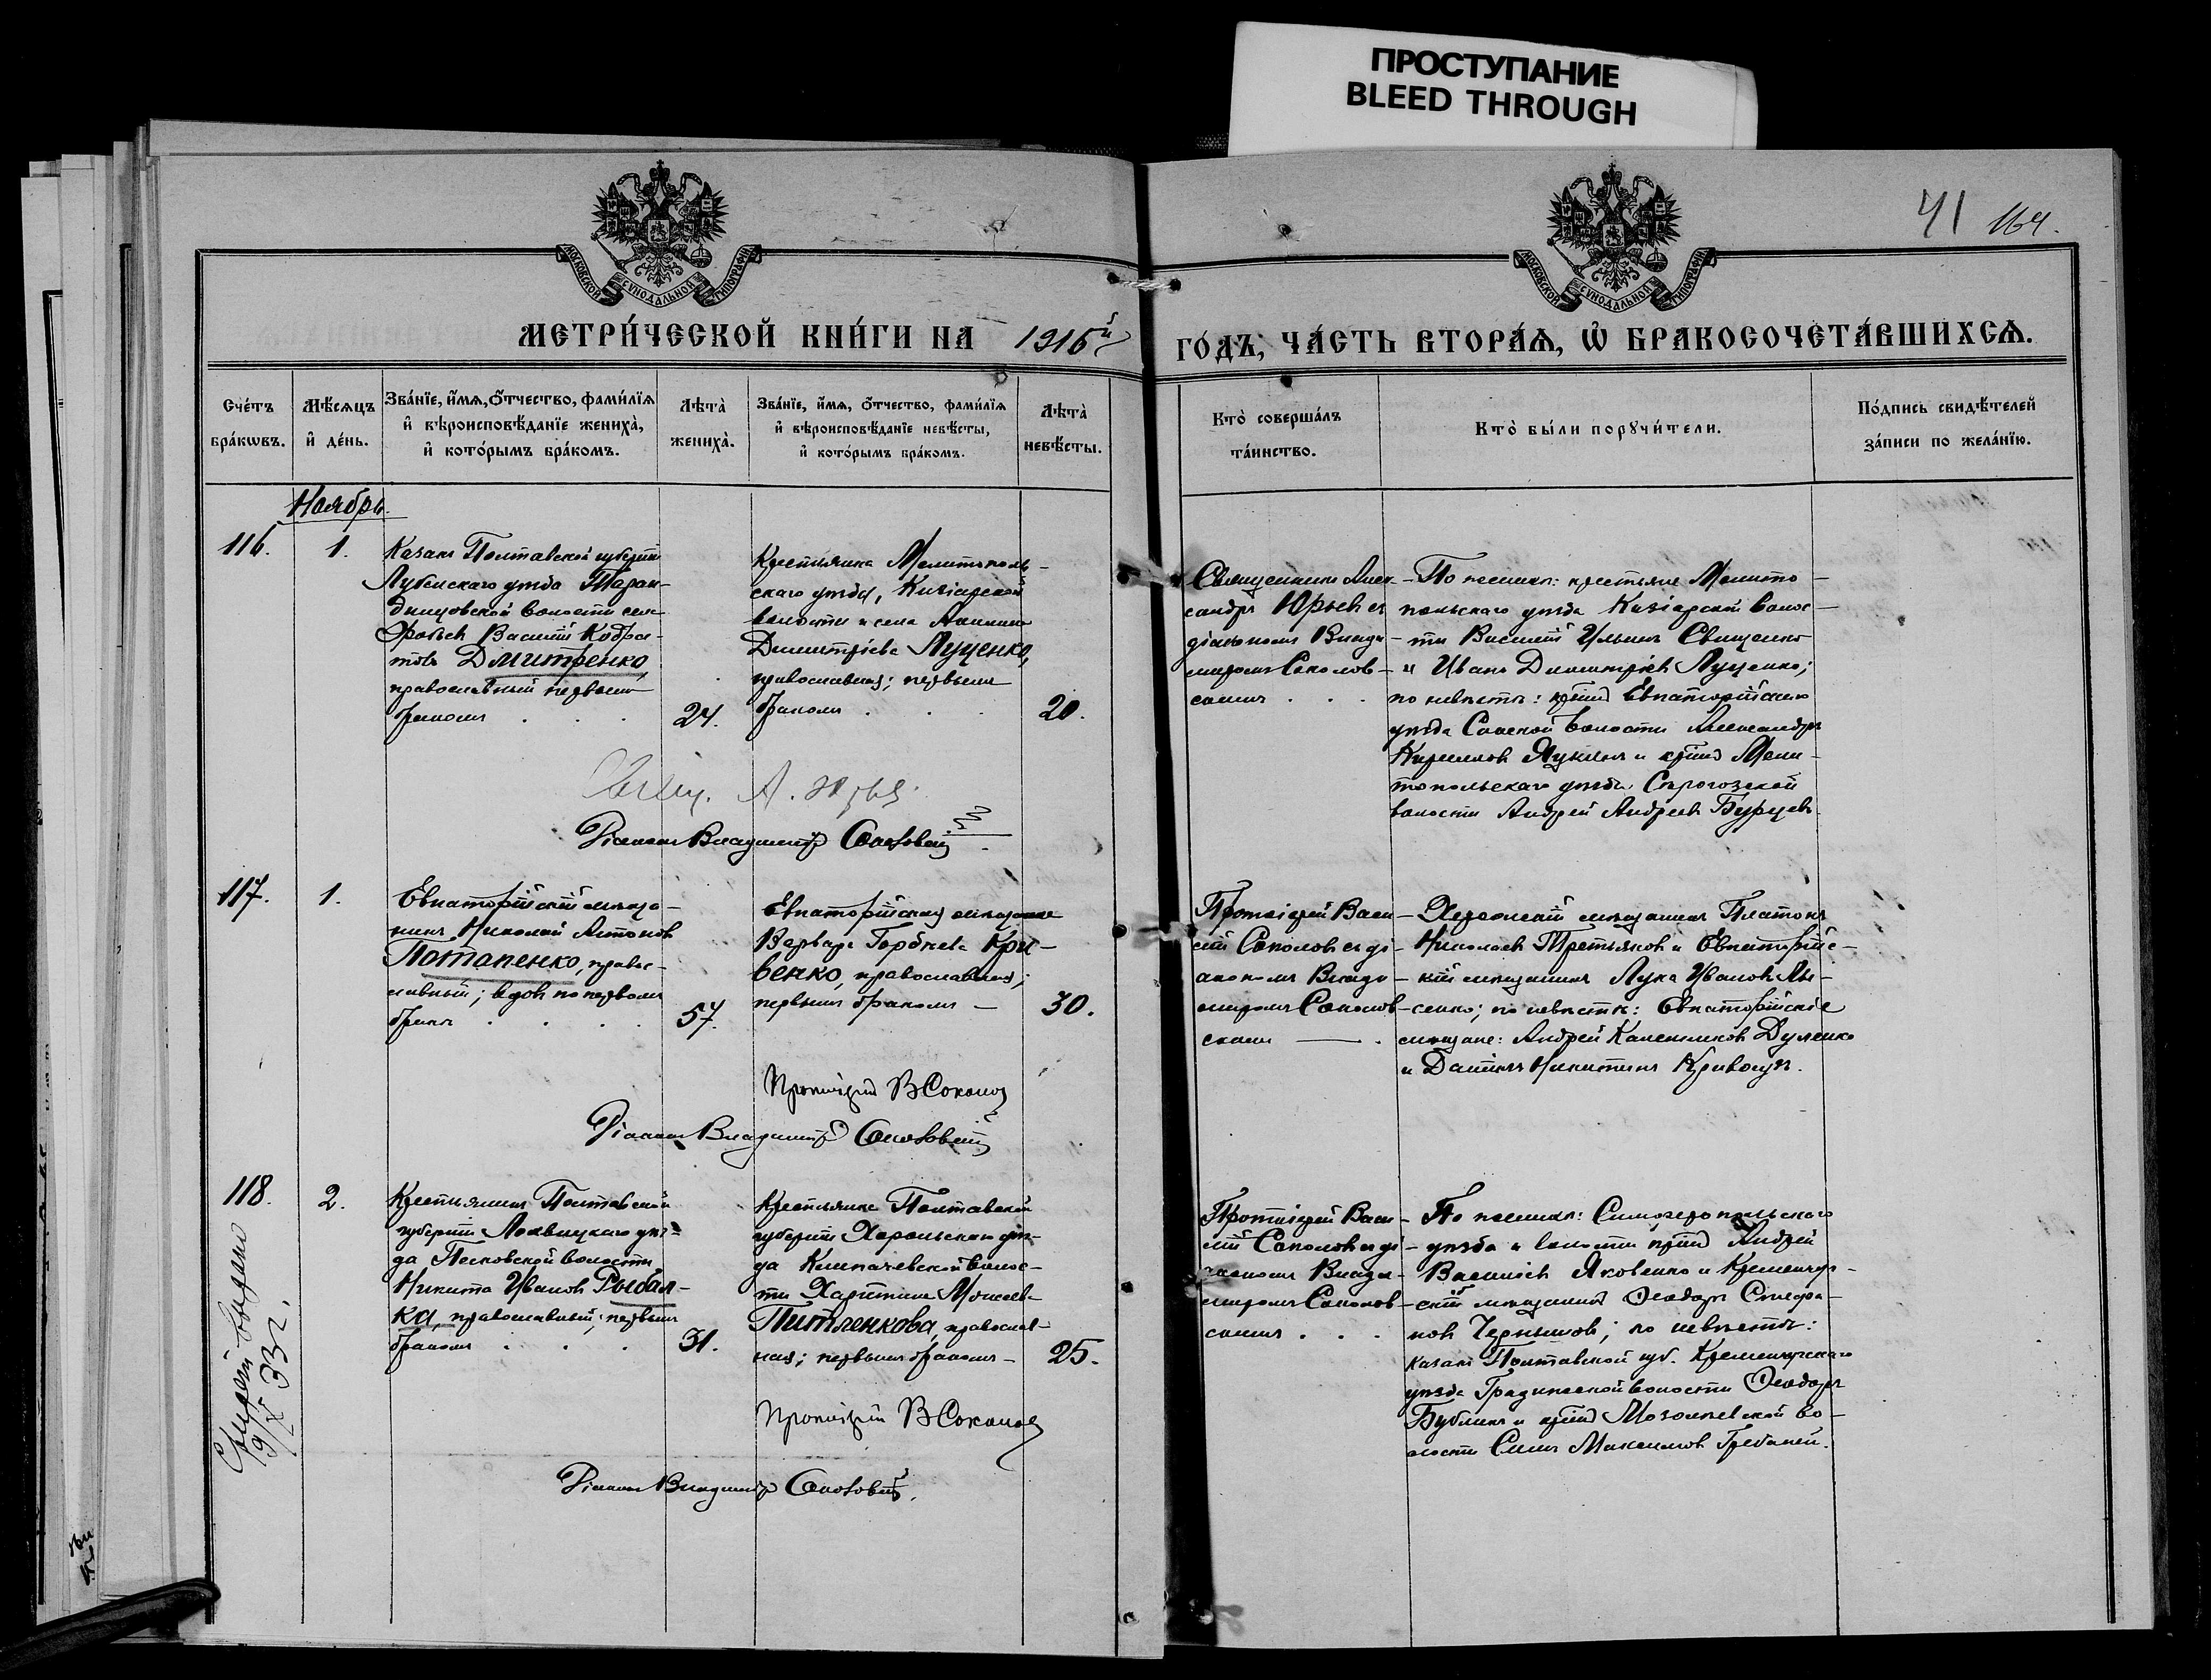 ПРОСТУПАНИЕ
BLEED THROUGH
41 164.
МОСКОВСКОЙ СѴНОДАЛЬНОЙ ТИПОГРАФІИ
МОСКОВСКОЙ СѴНОДАЛЬНОЙ ТИПОГРАФІИ
МЕТРИ́ЧЕСКОЙ КНИ́ГИ НА 1916й
ГО́ДЪ, ЧА́СТЬ ВТОРА́Ѧ, Ѽ БРАКОСОЧЕТА́ВШИХСѦ.
Сче́тъ
бра́кѡвъ.
Мѣ́сѧцъ
и҆ де́нь.
Зва́нїе, и҆́мѧ, ѻ҆́тчество, фами́лїѧ
и҆ вѣроисповѣ́данїе жениха̀,
и҆ кото́рымъ бра́комъ.
Лѣта̀
жениха̀.
Зва́нїе, и҆́мѧ, ѻ҆́тчество, фами́лїѧ
и҆ вѣроисповѣ́данїе невѣ́сты,
и҆ кото́рымъ бра́комъ.
Лѣта̀
невѣ́сты.
Кто̀ соверша́лъ
та́инство.
Кто̀ бы́ли порꙋчи́тели.
По́дпись свидѣ́телей
за́писи по жела́нїю.
Ноябрь.
116.
1.
Казакъ Полтавской губерніи
Лубенскаго уѣзда Таран-
динцовской волости села
Василій
Дмитренко,
православный первымъ
бракомъ . . .
24.
Крестьянка Мелитополь-
скаго уѣзда, Кизіярской
волости и села
Димитріева Луценко,
православная; первымъ
бракомъ . . .
20.
Священникъ Алек-
сандръ Юрьевъ съ
діакономъ Влади-
миромъ Соколов-
скимъ . . .
По женихѣ: крестьяне Мелито-
польскаго уѣзда Кизіярской волос-
ти Василій Ильинъ Свищенко
и Иванъ Димитріевъ Луценко;
по невѣстѣ: кр-нинъ Евпаторійскаго
уѣзда Сакской волости Александръ
Кирилловъ и кр-нинъ Мели-
топольскаго уѣзда
волости Андрей Андреевъ Бурцевъ.
Свящ. А. Юрьев.
Діаконъ Владиміръ Соколовскій
117.
1.
Евпаторійскій мѣща-
нинъ Николай Антоновъ
Потапенко, право-
славный; вдовъ по первомъ
бракѣ . . . .
57.
Евпаторійская мѣщанка
Варвара Кри-
венко, православная;
первымъ бракомъ —
30.
Протоіерей Васи-
лій Соколовъ съ ді-
акономъ Влади-
миромъ Соколов-
скимъ — .
Херсонскій мѣщанинъ Платонъ
Николаевъ Третьяковъ и Евпаторійс-
кій мѣщанинъ Лука Ивановъ Лы-
сенко; по невѣстѣ: Евпаторійскіе
мѣщане: Андрей Дуленко
и Даніилъ Никитинъ
Протоіерей ВСоколов
Діаконъ Владиміръ Соколовскій
118.
2.
Крестьянинъ Полтавской
губерніи Лохвицкаго уѣз-
да Песковской волости
Никита Ивановъ Рыбал-
ка, православный; первымъ
бракомъ . . .
31.
Крестьянка Полтавской
губерніи Хорольскаго уѣз-
да волос-
ти Харитина
Питленкова, православ-
ная; первымъ бракомъ —
25.
Протоіерей Васи-
лій Соколовъ съ ді-
акономъ Влади-
миромъ Соколов-
скимъ . . .
По женихѣ: Симферопольскаго
уѣзда и волости кр-нинъ Андрей
Васильевъ Яковенко и Кременчуг-
скій мѣщанинъ Ѳеодоръ Стефа-
новъ Чернышовъ; по невѣстѣ:
казакъ Полтавской губ. Кременчугскаго
уѣзда Градижской волости Ѳеодоръ
Бубликъ и кр-нинъ во-
лости Максимовъ
Протоіерей ВСоколов
Діаконъ Владиміръ Соколовскій.
выдано
9/X 33 г.